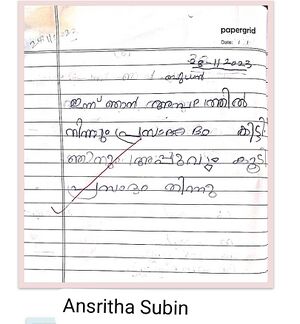 papergrid
Date: / /
28-11-2023
ബുധൻ
ഇന്ന് ഞാൻ അമ്പലത്തിൽ
നിന്നും പ്രസാദം കിട്ടി
ഞാനും അപ്പുവും കൂടി
പ്രസാദം തിന്നു
Ansritha Subin